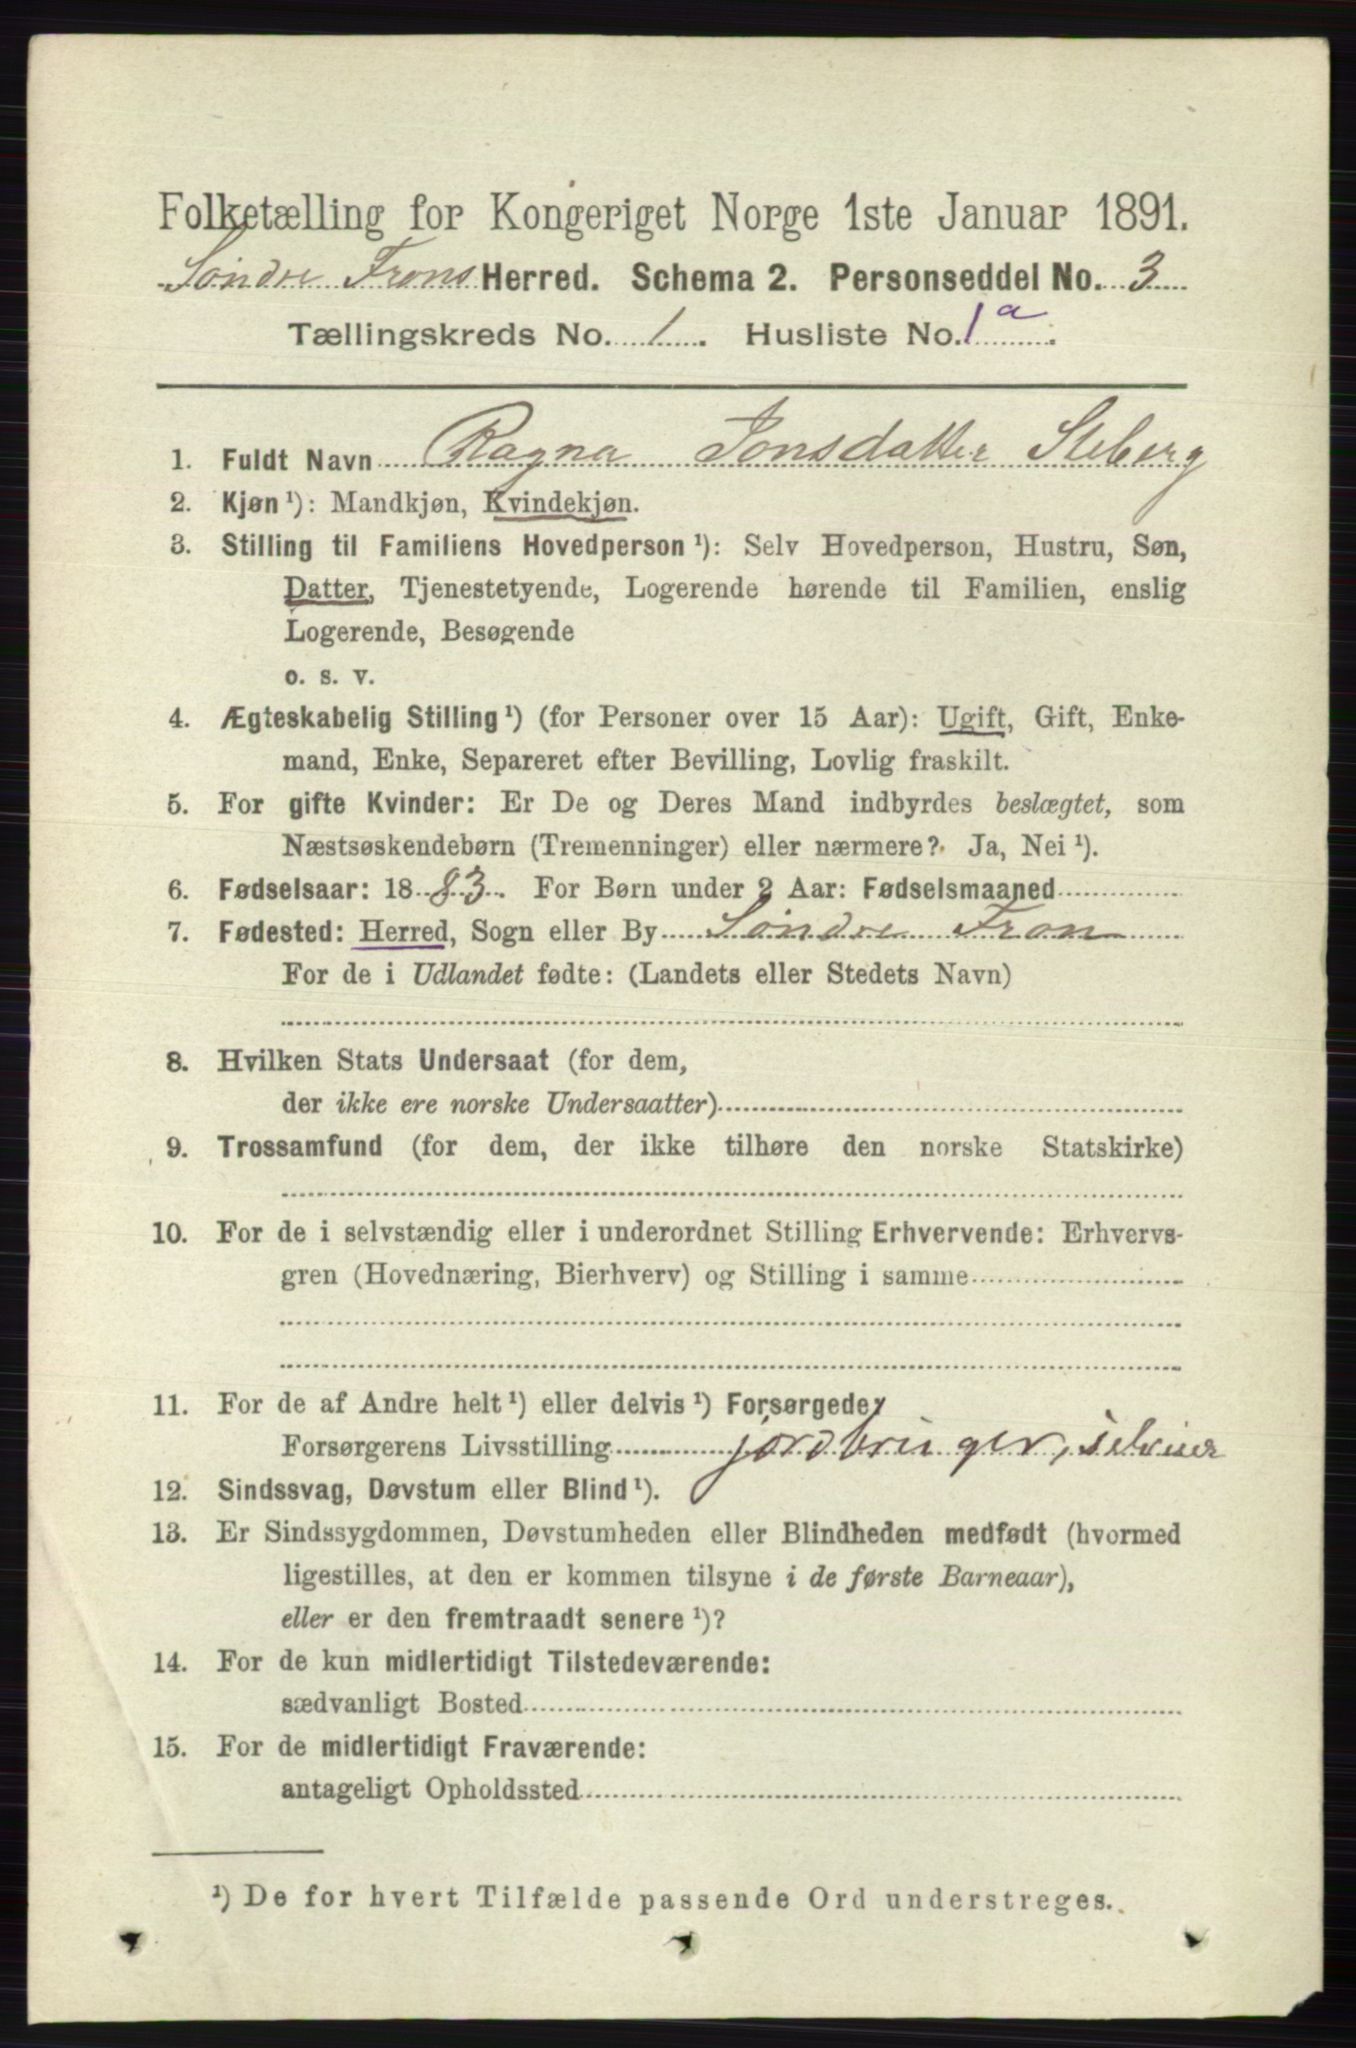 Folketælling for Kongeriget Norge 1ste Januar 1891.
Søndre Frons Herred. Schema 2. Personseddel No. 3
Tællingskreds No. 1. Husliste No. 1a.
1. Fuldt Navn Ragna Jonsdatter Steberg
2. Kjøn¹): Mandkjøn, Kvindekjøn.
3. Stilling til Familiens Hovedperson¹): Selv Hovedperson, Hustru, Søn,
Datter, Tjenestetyende, Logerende hørende til Familien, enslig
Logerende, Besøgende
o. s. v.
4. Ægteskabelig Stilling¹) (for Personer over 15 Aar): Ugift, Gift, Enke-
mand, Enke, Separeret efter Bevilling, Lovlig fraskilt.
5. For gifte Kvinder: Er De og Deres Mand indbyrdes beslægtet, som
Næstsøskendebørn (Tremenninger) eller nærmere? Ja, Nei¹).
6. Fødselsaar: 1883. For Børn under 2 Aar: Fødselsmaaned
7. Fødested: Herred, Sogn eller By Søndre Fron
For de i Udlandet fødte: (Landets eller Stedets Navn)
8. Hvilken Stats Undersaat (for dem,
der ikke ere norske Undersaatter)
9. Trossamfund (for dem, der ikke tilhøre den norske Statskirke)
10. For de i selvstændig eller i underordnet Stilling Erhvervende: Erhvervs-
gren (Hovednæring, Bierhverv) og Stilling i samme
11. For de af Andre helt¹) eller delvis¹) Forsørgede,
Forsørgerens Livsstilling jordbruger, selveier
12. Sindssvag, Døvstum eller Blind¹).
13. Er Sindssygdommen, Døvstumheden eller Blindheden medfødt (hvormed
ligestilles, at den er kommen tilsyne i de første Barneaar),
eller er den fremtraadt senere¹)?
14. For de kun midlertidigt Tilstedeværende:
sædvanligt Bosted
15. For de midlertidigt Fraværende:
antageligt Opholdssted
¹) De for hvert Tilfælde passende Ord understreges.